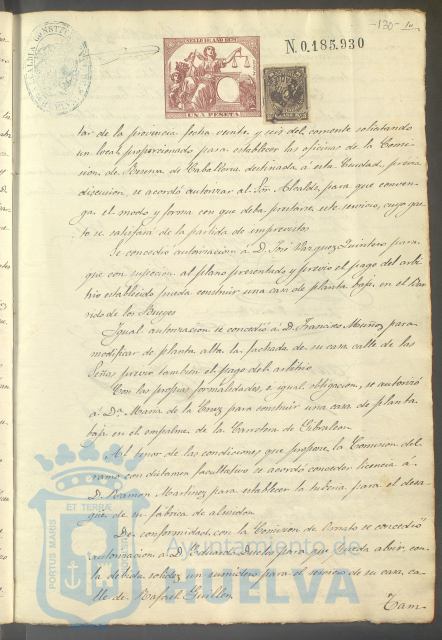 -130-
ALCALDIA CONSTITUCIONAL
SELLO 10º AÑO 1879
UNA PESETA
N. 0.185.930
tar de la provincia fecha veinte y seis del corriente solicitando
un local proporcionado para establecer las oficinas de la Comi-
sion de Reserva de Caballeria destinada á esta Ciudad, previa
discusion, se acordó autorizar al Sor. Alcalde, para que conven-
ga el modo y forma con que deba prestarse este servicio, cuyo gas-
to se satisfará de la partida de imprevistos
Se concedió autorizacion á D. José Vazquez Quintero para
que con sujecion al plano presentado y previo el pago del arbi-
trio establecido pueda construir una casa de planta baja en el Bar-
rido de los
Igual autorizacion se concedió á D. Francisco Muñoz para
modificar de planta alta la fachada de su casa calle de las
Señas previo tambien el pago del arbitrio
Con las propias formalidades, e igual obligacion, se autorizó
á Dª. Maria de la Cruz para construir una casa de planta
baja en el empalme de la Carretera de Gibraleon
Al tenor de las condiciones que propone la Comision del
ramo con dictamen facultativo se acordó conceder licencia á
D. Ramon Martinez para establecer la tuberia para el desa-
güe de su fábrica de almidon
De conformidad con la Comision de Ornato se concedió
autorizacion á D. para que pueda abrir con
la debida solidez un sumidero para el servicio de su casa ca-
lle de Rafael Guillen
Tam-
PORTUS MARIS
ET TERRÆ
Ayuntamiento de
HUELVA